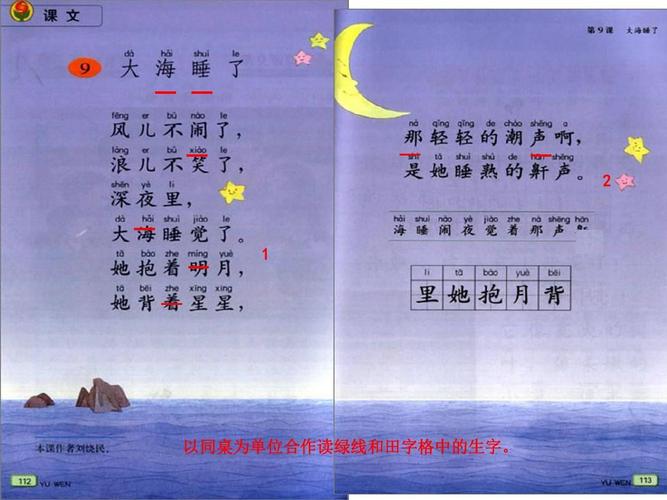 课文
dà hǎi shuì le
9 大海睡了
fēng er bú nào le
风儿不闹了，
làng er bú xiào le
浪儿不笑了，
shēn yè li
深夜里，
dà hǎi shuì jiào le
大海睡觉了。
tā bào zhe míng yuè
她抱着明月，
tā bēi zhe xīng xing
她背着星星，
1
本课作者刘饶民。
112
YU WEN
第9课 大海睡了
nà qīng qīng de cháo shēng a
那轻轻的潮声啊，
shì tā shuì shú de hān shēng
是她睡熟的鼾声。
2
hǎi shuì nào yè jiào zhe nà shēng hān
海睡闹夜觉着那声
li tā bào yuè bēi
里她抱月背
以同桌为单位合作读绿线和田字格中的生字。
YU WEN
113